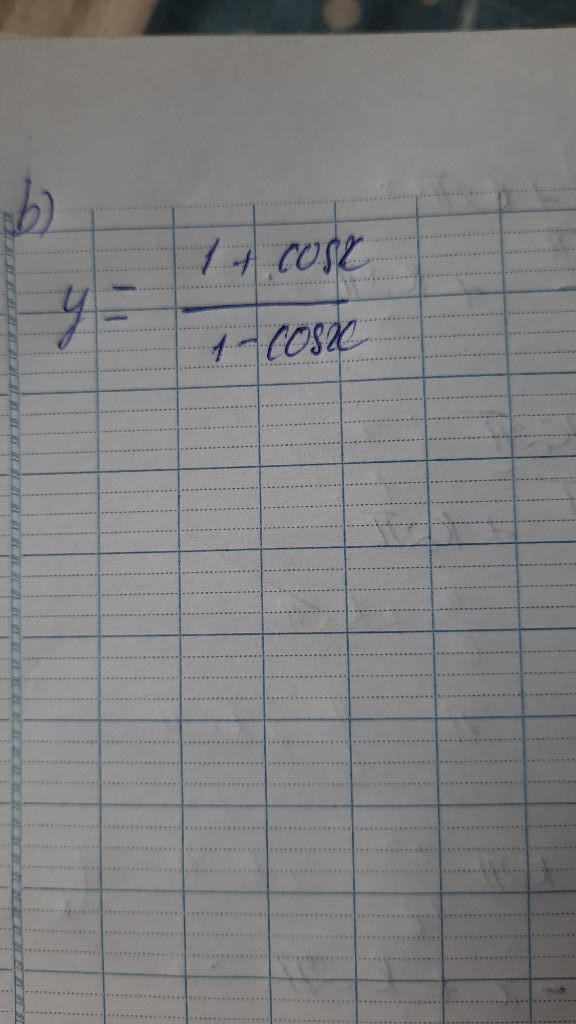 b)
y = 1 + cosx / 1 - cosx